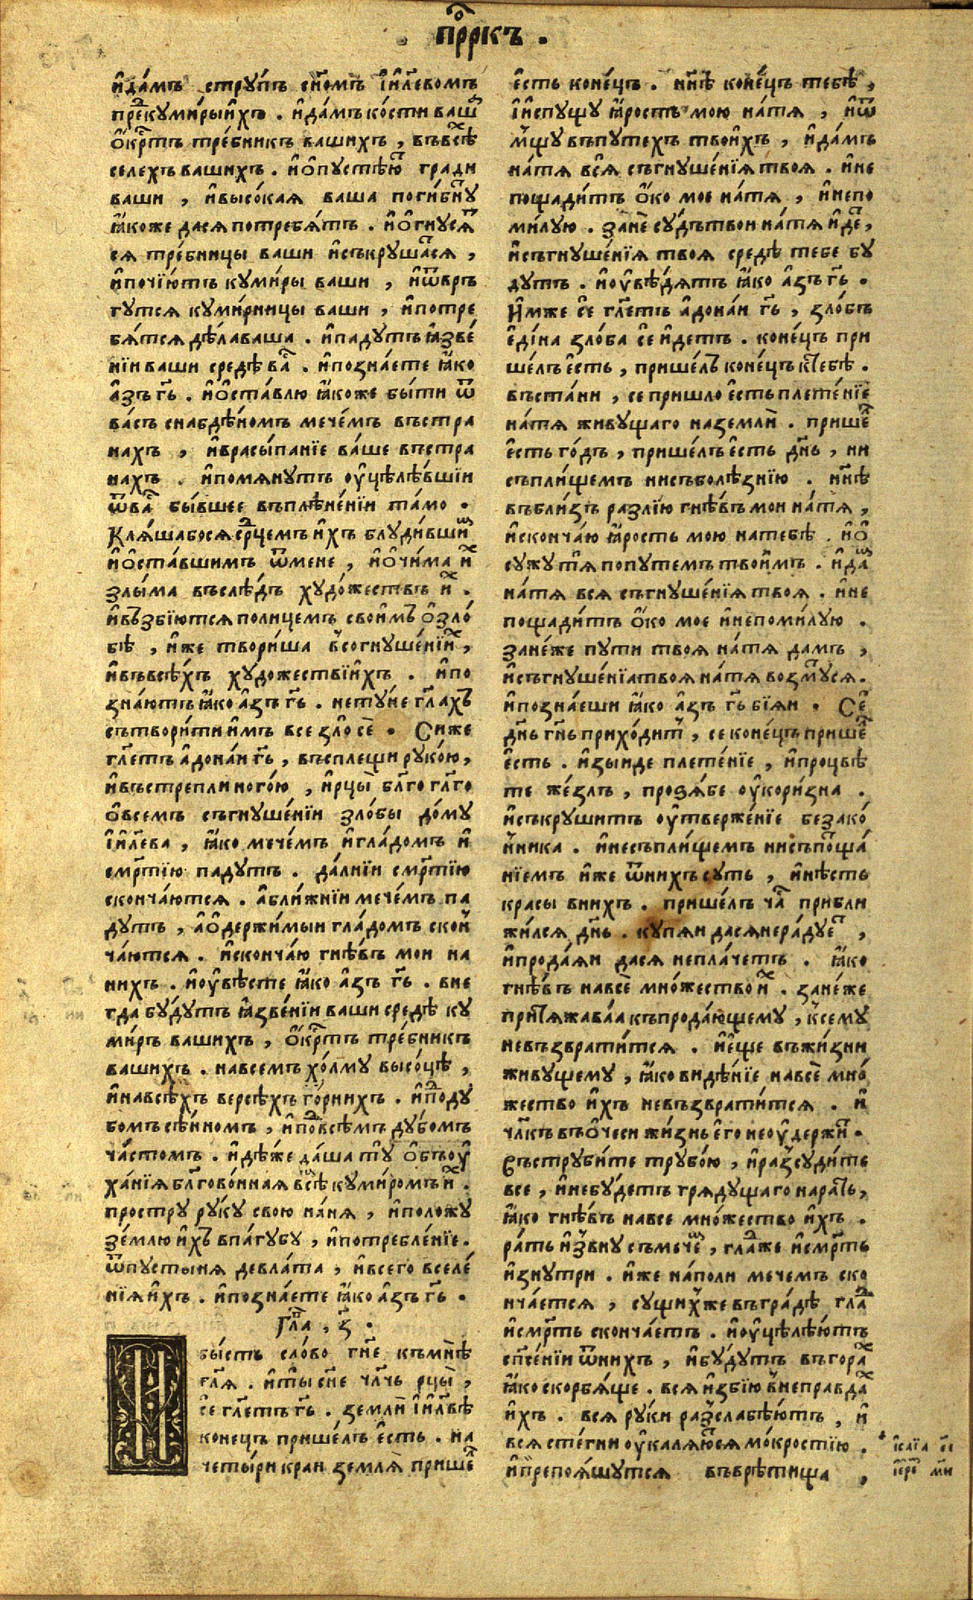 прⷪ҇ркъ .
и҆да́мъ стру́пъ сн҃омъ і҆и҃левомъ
пре́ⷣкумиры и҆́хъ . и҆да́мъ ко́сти ва́шѧ
ѻ҆́крⷭ҇тъ тре́бникъ ва́шихъ , въвсѣ́хъ
селехъ ва́шихъ . и҆ѻ҆пустѣ́ютъ гради
ваши , и҆высо́кая ваша поги́бнꙋ
ꙗ҆́коже дася потребя́тъ . и҆ѻ҆гнуся́т
ся тре́бницы ваши и҆съкруша́тся ,
и҆почі́ютъ куми́ры ваши , и҆ѿвръ
гутся куми́рницы ваши , и҆потре
бя́тся дѣ́ла ваша . и҆паду́тъ ꙗ҆зве́
нїи ваши средѣ́ ва́съ . и҆позна́ете ꙗ҆́ко
а҆́зъ гь҃ . и҆ѡ҆ста́влю ꙗ҆́коже бы́ти ѿ
ва́съ снабдѣ́ном мече́мъ въстра
нахъ , и҆врасы́панїе ва́ше въстра
нахъ . и҆помянутъ ᲂу҆цѣлѣ́вшїи
ѿва́съ бы́вшее въплѣне́нїи та́мо .
Кля́шабося срⷣцемъ и҆́хъ блуди́вшимъ
и҆ѡ҆ста́вшимъ ѿмене , и҆ѻ҆чи́ма и҆́хъ
злы́ма въслѣ́дъ худо́жествъ и҆́хъ .
и҆възбїю́тся по лицемъ свои́мъ ѡ҆зло́
бѣ , и҆́же твори́ша всогнуше́нїих ,
и҆въвсѣ́хъ худо́жествїи и҆́хъ . и҆по
зна́ютъ ꙗ҆́ко а҆́зъ гь҃ . нету́не гл҃ахъ
сътвори́ти и҆́мъ все зло сѐ . Сиже
гл҃етъ а҆дона́и гь҃ , въсплещи руко́ю ,
и҆въстрепли ного́ю , и҆рцы̀ бл҃го гл҃го
ѻ҆всемъ съгнуше́нїи зло́бы до́му
і҆и҃лева , ꙗ҆́ко мече́мъ и҆гла́домъ и҆
сме́ртїю паду́тъ . да́лнїи сме́ртїю
сконча́ются . а҆бли́жнїи мече́мъ па
ду́тъ , а҆ѻ҆держи́мыи гла́домъ скон
ча́ются . и҆сконча́ю гнѣ́въ мои на
нихъ . и҆ᲂу҆вѣ́сте ꙗ҆́ко а҆́зъ гь҃ . вне
гда бу́дутъ ꙗ҆зве́нїи ваши средѣ̀ ку
ми́ръ вашихъ , ѻ҆́крⷭ҇тъ тре́бникъ
вашихъ . навсемъ хо́лму высо́цѣ ,
и҆навсѣ́хъ версѣ́хъ го́рнихъ . и҆поⷣду
бомъ сѣ́нномъ , и҆поⷣвсѣ́мъ ду́бомъ
ча́стомъ . и҆дѣ́же да́ша ту̀ ѻ҆бъᲂу҆
ха́нїя бл҃гово́нная всѣ́мъ куми́ромъ и҆́хъ .
простру ру́ку свою на́ня , и҆положу
зе́млю и҆́хъ впа́губу , и҆потребле́нїе .
ѿпусты́ня девла́та , и҆всего вселе́
нїя и҆́хъ . и҆позна́ете ꙗ҆́ко а҆́зъ гь҃ .
Глⷡ҇а , з҃ .
И бы́сть сло́во гн҃е къмнѣ̀
гл҃я . и҆ты̀ сн҃е чл҃чь рцы̀ ,
се҆ гл҃етъ гь҃ . землѝ і҆и҃лвѣ
коне́цъ прише́лъ є҆́сть . на
четы́ри краи землѧ̀ прише́л
є҆́сть коне́цъ . нн҃ѣ коне́цъ тебѣ̀ ,
і҆и҆спущу ꙗ҆́рость мою на́тя , и҆ѿ
мщу въпуте́хъ твои́хъ , и҆да́мъ
на́тя вся съгнуше́нїя твоя . и҆не
пощади́тъ ѻ҆́ко мое на́тя , и҆непо
ми́лую . занѐ су́дъ твои на́тя и҆́детъ ,
и҆съгнуше́нїя твоя средѣ̀ тебе бу
дутъ . и҆ᲂу҆вѣ́дятъ ꙗ҆́ко а҆́зъ гь҃ .
И҆́мже се҆ гл҃етъ а҆дона́и гь҃ , зло́бъ
є҆ди́на зло́ба се и҆́детъ . коне́цъ при
ше́лъ є҆́сть , прише́лъ коне́цъ ктебѣ̀ .
въста́ни , се пришло є҆́сть плете́нїе
на́тя живу́щаго наземлѝ . прише́л
є҆́сть го́дъ , прише́лъ є҆́сть дн҃ь , ни
съпли́щемъ нисъболѣ́знїю . нн҃ѣ
въбли́зъ разлїю гнѣ́въ мои на́тя ,
и҆сконча́ю ꙗ҆́рость мою натебѣ̀ . и҆ѻ҆
сужу тя попуте́мъ твои́мъ . и҆да́мъ
на́тя вся съгнуше́нїя твоя . и҆не
пощади́тъ ѻ҆́ко мое и҆непоми́лую .
зане́же пути твоя на́тя дамъ ,
и҆съгнуше́нїя твоя на́тя возму́ся .
и҆позна́еши ꙗ҆́ко а҆́зъ гь҃ бїяи . Се҆
дн҃ь гн҃ь прихо́дитъ , се коне́цъ прише́л
є҆́сть . и҆зыиде плете́нїе , и҆процвѣ
те же́злъ , прозя́бе ᲂу҆кори́зна .
и҆съкруши́тъ ᲂу҆твержє́нїе безако́
нника . и҆несъпли́щемъ нисъпоща́
нїемъ и҆́же ѿнихъ суть , и҆нѣ́сть
красы внихъ . прише́лъ ча́съ прибли
жи́лся дн҃ь . купяи дася нера́дует ,
и҆прода́яи дася непла́четъ . ꙗ҆́ко
гнѣ́въ навсѐ мно́жество и҆́хъ . зане́же
притяжава́а къпрода́ющему , ксему
невъзврати́тся . и҆є҆́ще въжи́зни
живу́щему , ꙗ҆́ко видѣ́нїе навсѐ мно́
жество и҆́хъ невъзврати́тся . и҆
чл҃къ въѻ҆́чеси жи́знь є҆го неᲂу҆держи́т .
Въструби́те трубо́ю , и҆разсуди́те
все , и҆небу́детъ гряду́щаго нара́ть ,
ꙗ҆́ко гнѣ́въ навсе мно́жество и҆́хъ .
ра́ть и҆звну съмече́мъ , гла́дже и҆сме́рть
и҆знутри . и҆́же на́поли мечемъ ско
нча́ется , сущихже въгра́дѣ гла́дъ
и҆сме́рть сконча́етъ . и҆ᲂу҆цѣлѣ́ютъ
спⷭ҇е́нїи ѿнихъ , и҆бу́дутъ въгора́х
ꙗ҆́ко скорбя́ще . вся и҆збїю внепра́вдах
и҆́хъ . вся ру́ки разслабѣ́ютъ , и҆
вся сте́гни ᲂу҆каля́ются мо́кростїю .
и҆препоя́шутся въврѣ́тища ,
і҆са́їа гі
і҆ере҆ ми